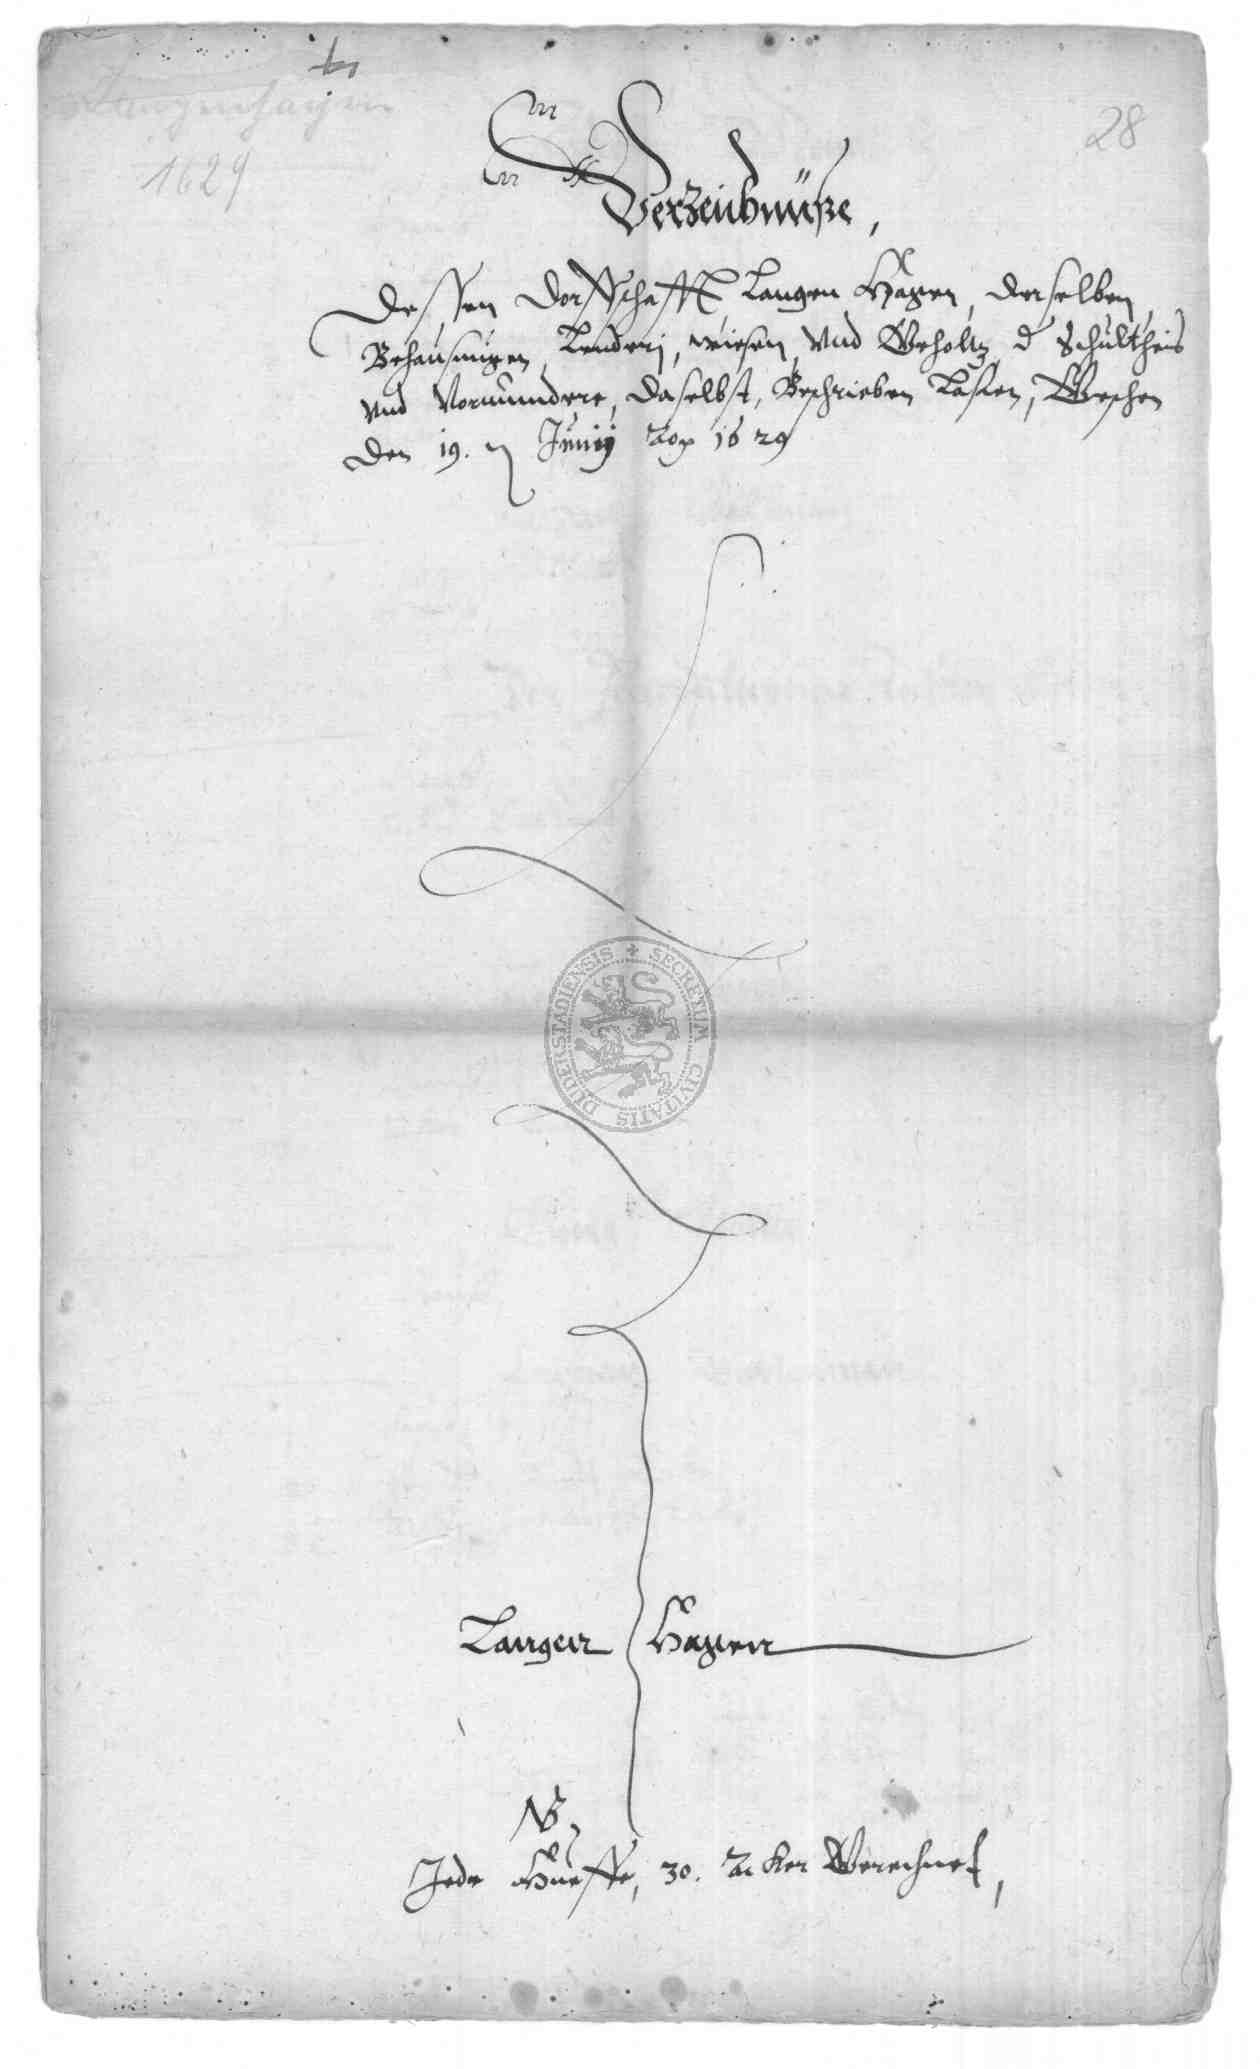 Langenhagen
1629
28
Verzeichnüße,
Dessen Dorffschafft Langen Hagen, derselben
Behausungen, Lenderj, wiesen, vnd Geholtz, d Schultheis
vnd Vormundere, daselbst, Beschrieben Laßen, Geschen
den 19. Junij Ao 1629
SECRETUM CIVITATIS DUDERSTADIENSIS
Langen Hagen
NB
Jede Hueffe, 30. Acker Gerechnet,